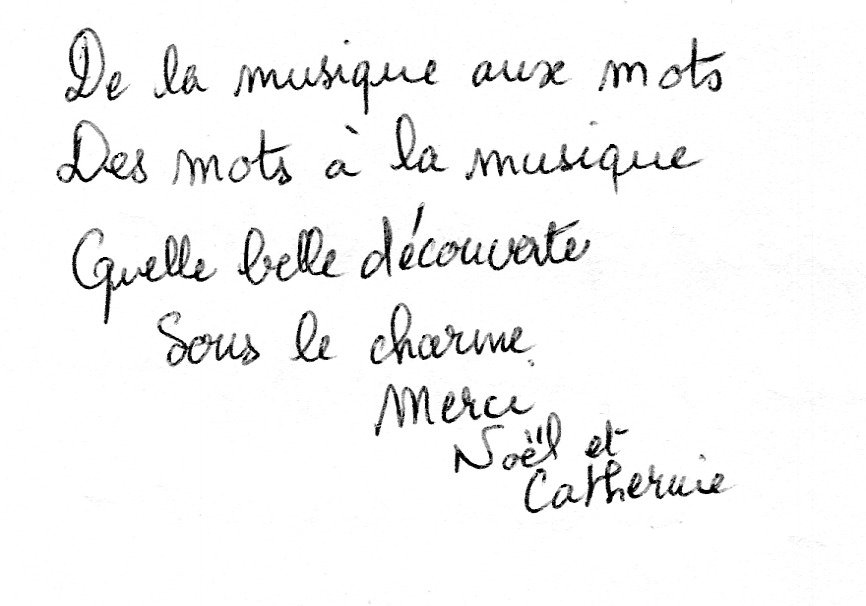 De la musique aux mots
Des mots à la musique
Quelle belle découverte
Sous le charme.
Merci
Noël et
Catherine